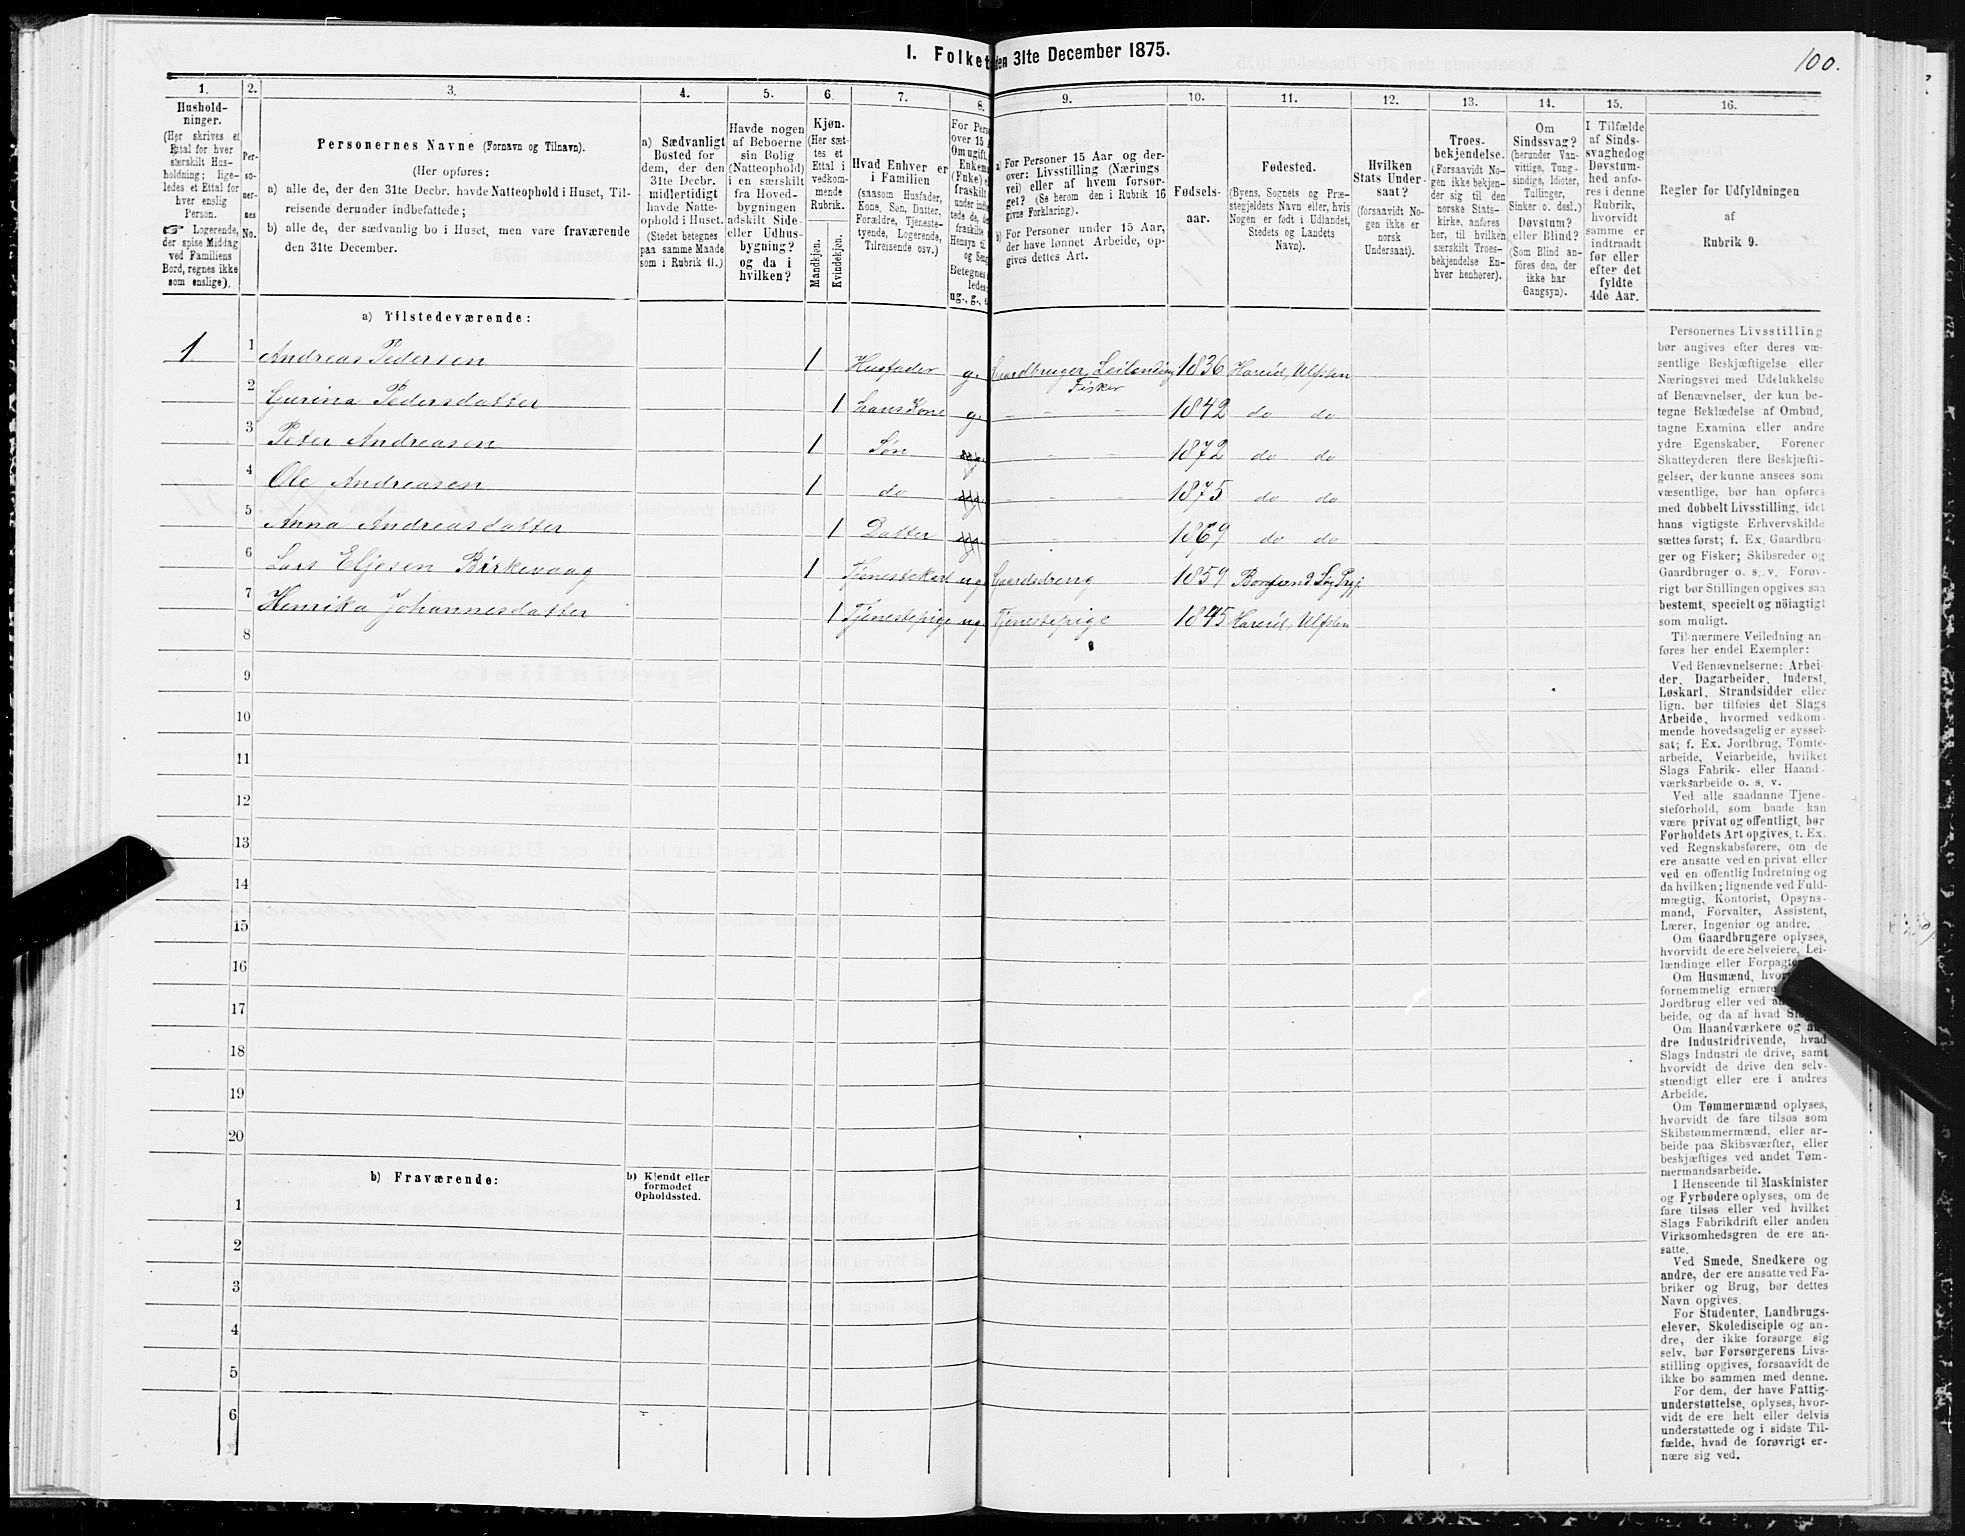 1. Folket den 31te December 1875.
100.
1.
2.
3.
4.
5.
6.
7.
8.
9.
10.
11.
12.
13.
14.
15.
16.
Hushold-
ninger.
(Her skrives et
Ettal for hver
særskilt Hus-
holdning; lige-
ledes et Ettal for
hver enslig
Person.
☞ Logerende,
der spise Middag
ved Familiens
Bord, regnes ikke
som enslige).
Per-
so-
ner-
nes
No.
Personernes Navne (Fornavn og Tilnavn).
(Her opføres:
a) alle de, der den 31te Decbr. havde Natteophold i Huset, Til-
reisende derunder indbefattede;
b) alle de, der sædvanlig bo i Huset, men vare fraværende
den 31te December.
a) Sædvanligt
Bosted for
dem, der den
31te Decbr.
midlertidigt
havde Natte-
ophold i Huset.
(Stedet betegnes
paa samme Maade
som i Rubrik 11.)
Havde nogen
af Beboerne
sin Bolig
(Natteophold)
i en særskilt
fra Hoved-
bygningen
adskilt Side-
eller Udhus-
bygning?
og da i
hvilken?
Kjøn.
(Her sæt-
tes et
Ettal i
vedkom-
mende
Rubrik.
Mandkjøn.
Kvindekjøn.
Hvad Enhver er
i Familien
(saasom Husfader,
Kone, Søn, Datter,
Forældre, Tjeneste-
tyende, Logerende,
Tilreisende osv.)
For Pers
over 15
Om ugift,
Enkem
(Enke) e
fraskilt
under indb
tede de, de
fraskilte
Hensyn til
og Seng
Betegnes
ledes:
ug., g., e
a) For Personer 15 Aar og der-
over: Livsstilling (Nærings
vei) eller af hvem forsør-
get? (Se herom den i Rubrik 16
givne Forklaring).
b) For Personer under 15 Aar,
der have lønnet Arbeide, op-
gives dettes Art.
Fødsels-
aar.
Fødested.
(Byens, Sognets og Præ-
stegjeldets Navn eller, hvis
Nogen er født i Udlandet,
Stedets og Landets
Navn).
Hvilken
Stats Under-
saat?
(forsaavidt No-
gen ikke er
norsk
Undersaat).
Troes-
bekjendelse.
(Forsaavidt No-
gen ikke bekjen-
der sig til den
norske Stats-
kirke, anføres
her, til hvilken
særskilt Troes-
bekjendelse En-
hver henhører).
Om
Sindssvag?
(herunder Van-
vittige, Tung-
sindige, Idioter,
Tullinger,
Sinker o. desl.)
Døvstum?
eller Blind?
(Som Blind an-
føres den, der
ikke har
Gangsyn).
I Tilfælde
af Sinds-
svaghed og
Døvstum-
hed anfø-
res i denne
Rubrik,
hvorvidt
samme er
indtraadt
før eller
efter det
fyldte
4de Aar.
Regler for Udfyldningen
af
Rubrik 9.
a) Tilstedeværende:
1 1 Andreas Pedersen 1 Husfader g. Gaardbruger, Leilending 1836 Hareid, Ulfsten
Fisker
2 Gurina Pedersdatter 1 hans Kone g. — — — 1842 do do
3 Peter Andreasen 1 Søn ug. — — — 1872 do do
4 Ole Andreasen 1 do ug. — — — 1875 do do
5 Anna Andreasdatter 1 Datter ug. — — — 1869 do do
6 Lars Eljesen Birkevaag 1 Tjenestekarl ug. Gaardsdreng 1859
7 Henrika Johannesdatter 1 Tjenestepige ug. Tjenestepige 1845 Hareid, Ulfsten
8
9
10
11
12
13
14
15
16
17
18
19
20
b) Fraværende:
b) Kjendt eller
formodet
Opholdssted.
1
2
3
4
5
6
Personernes Livsstilling
bør angives efter deres væ-
sentlige Beskjæftigelse eller
Næringsvei med Udelukkelse
af Benævnelser, der kun be-
tegne Beklædelse af Ombud,
tagne Examina eller andre
ydre Egenskaber. Forener
Skatteyderen flere Beskjæfti-
gelser, der kunne ansees som
væsentlige, bør han opføres
med dobbelt Livsstilling, idet
hans vigtigste Erhvervskilde
sættes først; f. Ex. Gaardbru-
ger og Fisker; Skibsreder og
Gaardbruger o. s. v. Forøv-
rigt bør Stillingen opgives saa
bestemt, specielt og nöiagtigt
som muligt.
Til nærmere Veiledning an-
føres her endel Exempler:
Ved Benævnelserne: Arbei-
der, Dagarbeider, Inderst,
Løskarl, Strandsidder eller
lign. bør tilføies det Slags
Arbeide, hvormed vedkom-
mende hovedsagelig er syssel-
sat; f. Ex. Jordbrug, Tomte-
arbeide, Veiarbeide, hvilket
Slags Fabrik- eller Haand-
værksarbeide o. s. v.
Ved alle saadanne Tjene-
steforhold, som baade kan
være privat og offentligt, bør
Forholdets Art opgives, t. Ex.
ved Regnskabsførere, om de
ere ansatte ved en privat eller
ved en offentlig Indretning og
da hvilken; lignende ved Fuld-
mægtig, Kontorist, Opsyns-
mand, Forvalter, Assistent,
Lærer, Ingeniør og andre.
Om Gaardbrugere oplyses,
hvorvidt de ere Selveiere, Lei-
lændinge eller Forpagte
Om Husmænd, hvor
fornemmelig ernære
Jordbrug eller ved an
beide, og da af hvad Sl
Om Haandværkere og an-
dre Industridrivende, hvad
Slags Industri de drive, samt
hvorvidt de drive den selv-
stændigt eller ere i andres
Arbeide.
Om Tømmermænd oplyses,
hvorvidt de fare tilsøs som
Skibstømmermænd, eller ar-
beide paa Skibsværfter, eller
beskjæftiges ved andet Tøm-
mermandsarbeide.
I Henseende til Maskinister
og Fyrbødere oplyses, om de
fare tilsøs eller ved hvilket
Slags Fabrikdrift eller anden
Virksomhedsgren de ere an-
satte.
Ved Smede, Snedkere og
andre, der ere ansatte ved Fa-
briker og Brug, bør dettes
Navn opgives.
For Studenter, Landbrugs-
elever, Skoledisciple og an-
dre, der ikke forsørge sig
selv, bør Forsørgerens Livs-
stilling opgives, forsaavidt de
ikke bo sammen med denne.
For dem, der have Fattig-
understøttelse, oplyses, hvor-
vidt de ere helt eller delvis
understøttede og i sidste Til-
fælde, hvad de forøvrigt er-
nære sig ved.